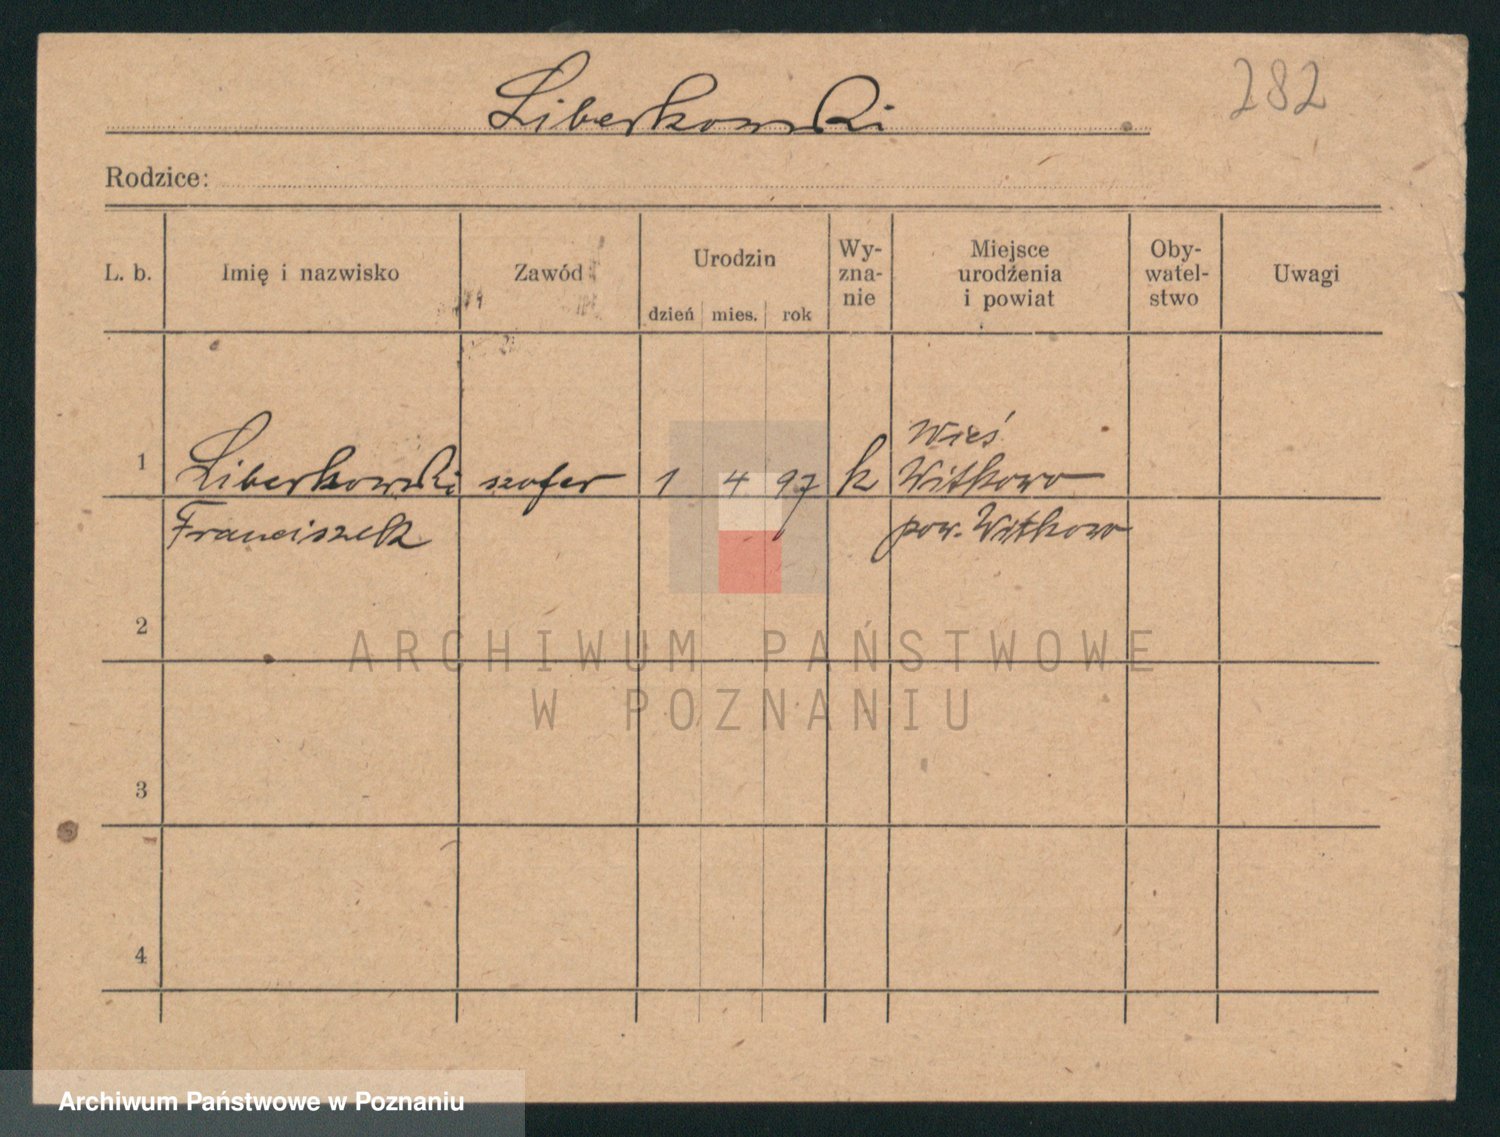 Liberkowski
282
Rodzice:
L. b.
Imię i nazwisko
Zawód
Urodzin
dzień mies. rok
Wy-
zna-
nie
Miejsce
urodzenia
i powiat
Oby-
watel-
stwo
Uwagi
1 Liberkowski szofer 1 4 97 k Wieś
Witkowo
Franciszek pow. Witkowo
2
3
4
ARCHIWUM PAŃSTWOWE
W POZNANIU
Archiwum Państwowe w Poznaniu